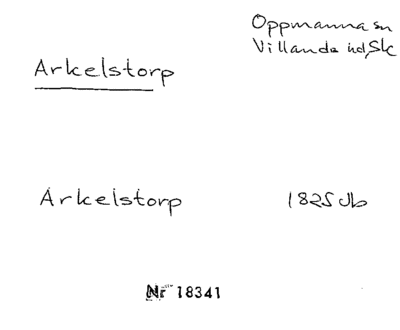 Oppmanna sn
Villands hd, Sk
Arkelstorp
Arkelstorp 1825 Jb
Nr 18341